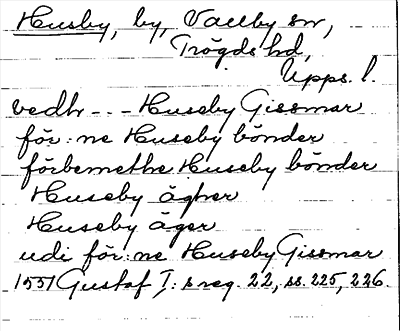 Husby, by, Vallby sn,
Trögds hd,
Upps. l.
vedh - - - Huseby Gissmar
för:ne Huseby bönder
förbemethe Huseby bönder
Huseby ägher
Huseby äger
udi för:ne Huseby Gissmar
1551 Gustaf I:s reg. 22, ss. 225, 226.